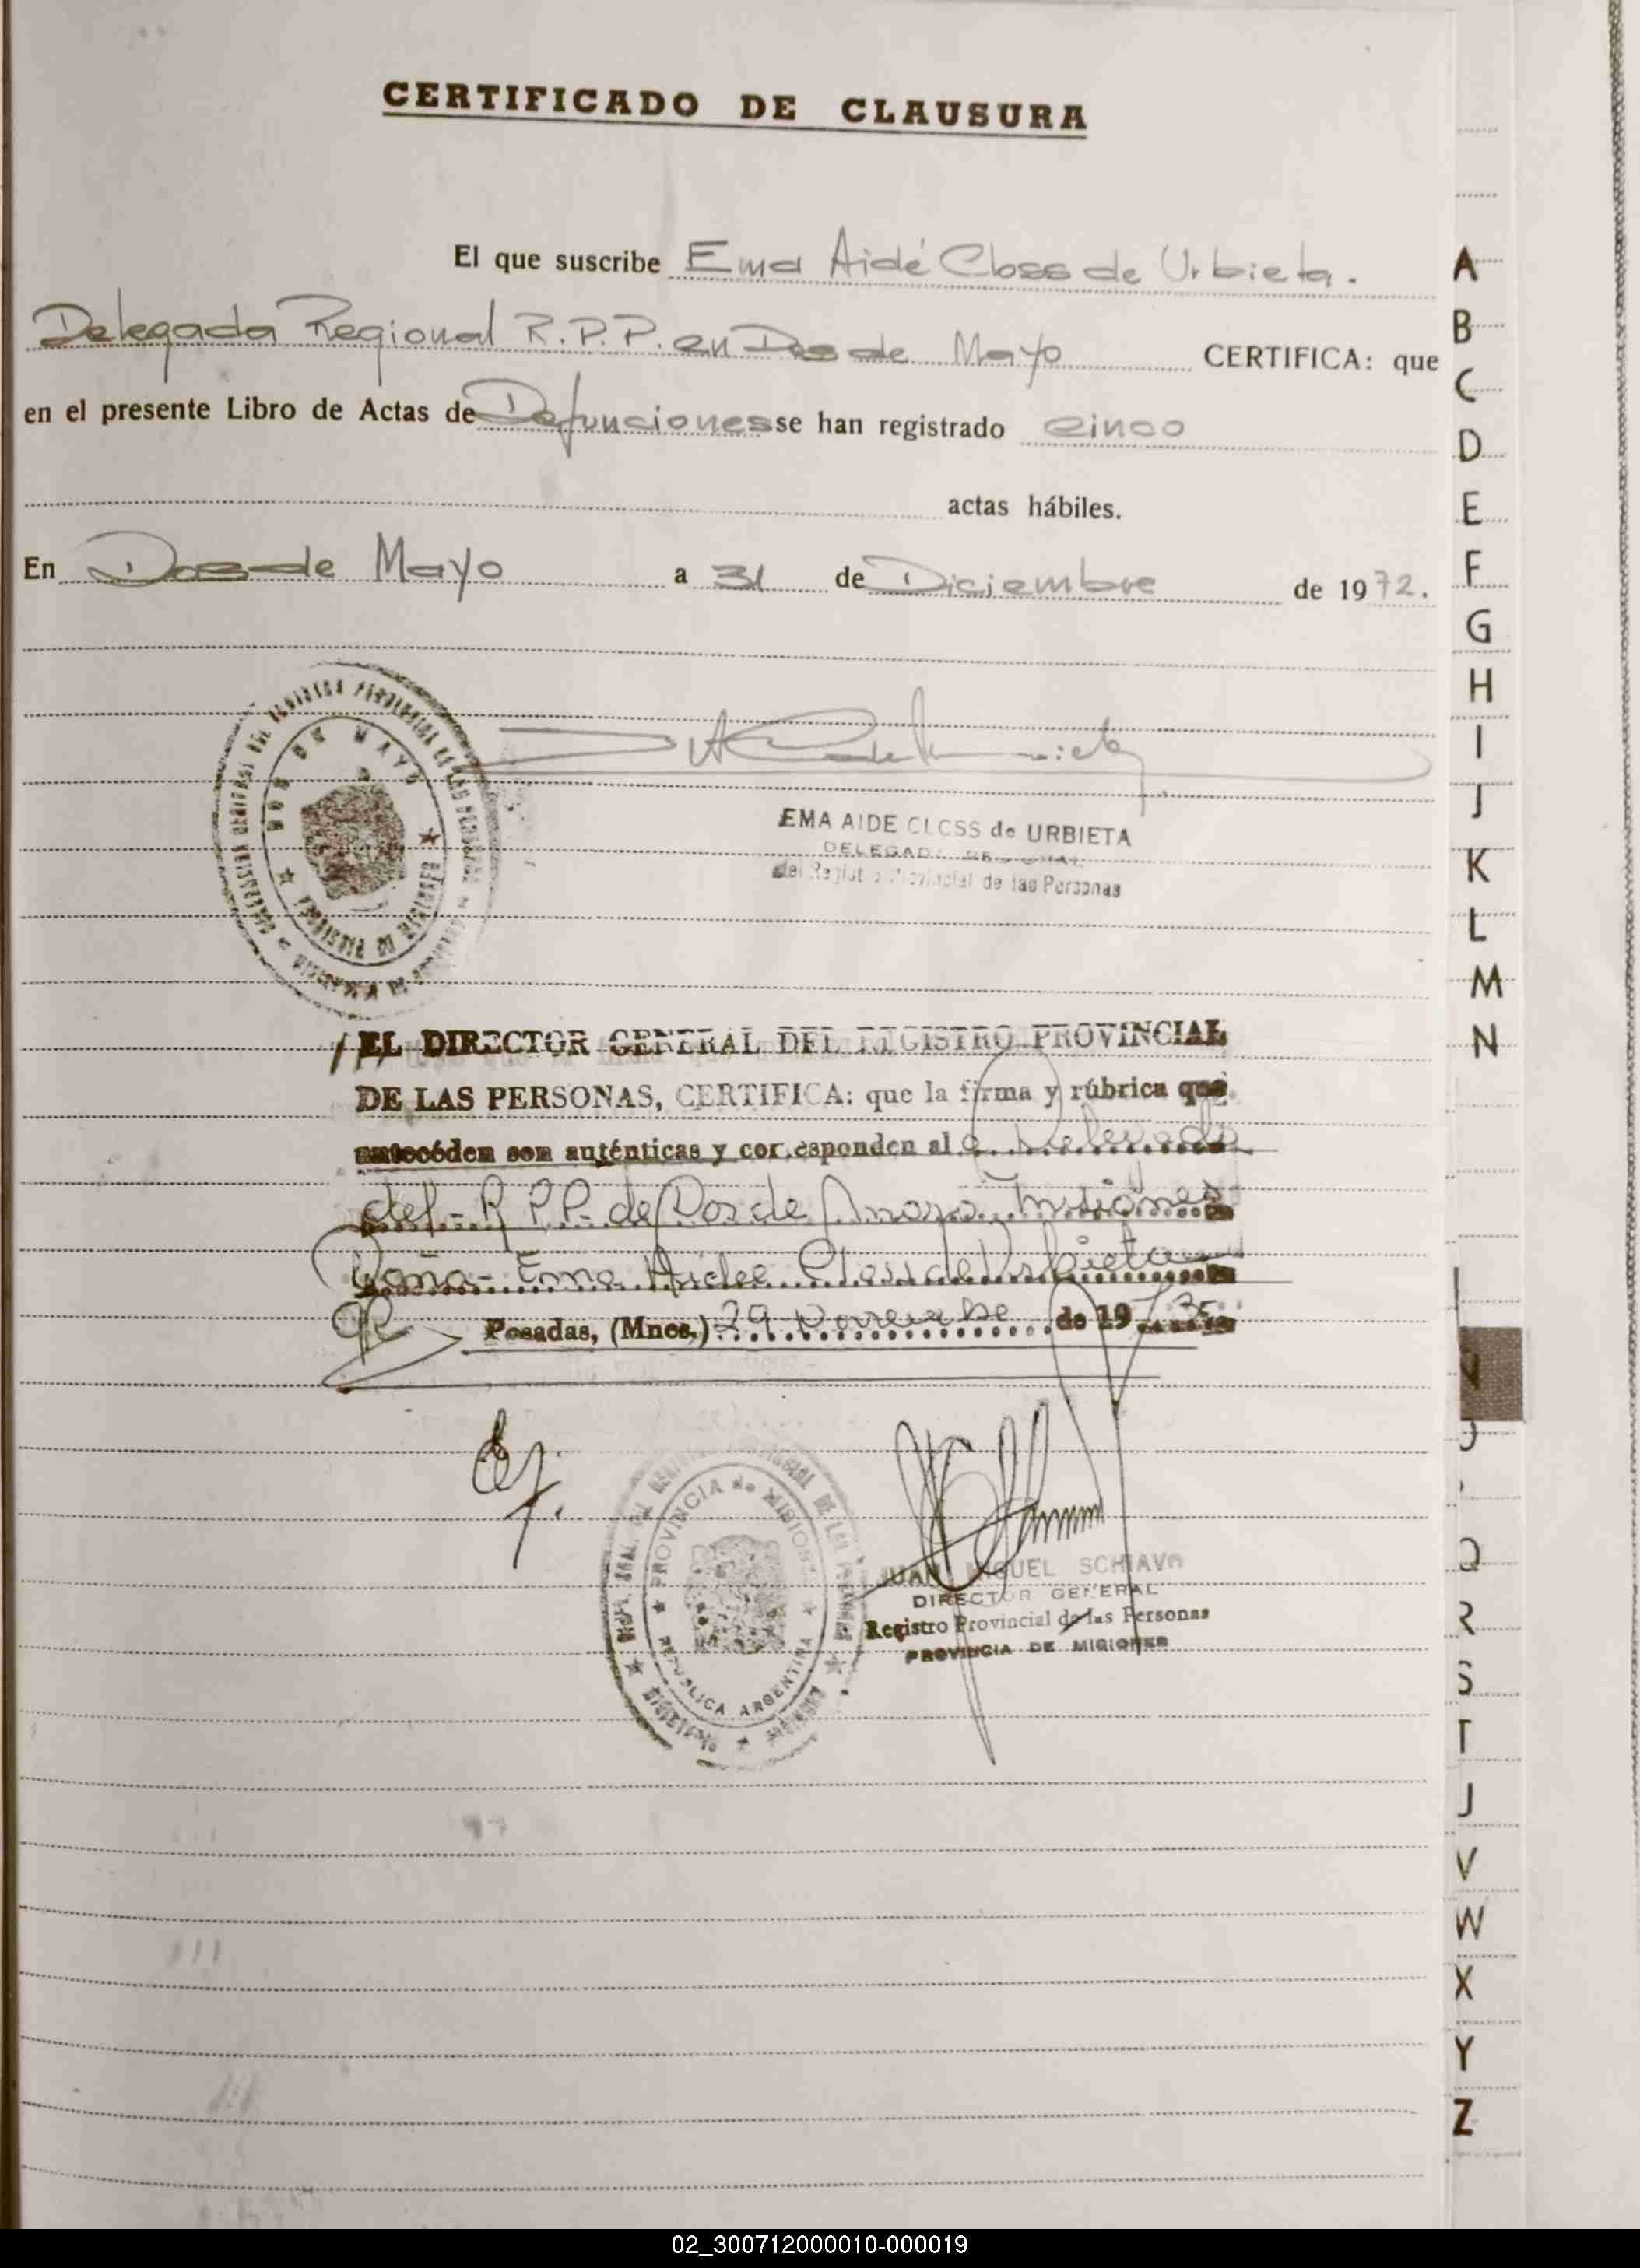 CERTIFICADO DE CLAUSURA
El que suscribe Ema Aidé Closs de Urbieta.
Delegada Regional R.P.P. en Dos de Mayo CERTIFICA: que
en el presente Libro de Actas de Defunciones se han registrado cinco
actas hábiles.
En Dos de Mayo a 31 de Diciembre de 1972.
DOS DE MAYO
EMA AIDE CLOSS de URBIETA
DELEGADA REGIONAL
del Registro Provincial de las Personas
EL DIRECTOR GENERAL DEL REGISTRO PROVINCIAL
DE LAS PERSONAS, CERTIFICA: que la firma y rúbrica que
anteceden son auténticas y corresponden al
del R.P.P. de Dos de Mayo, Misiones
Doña Ema Aidee Closs de Urbieta
Posadas, (Mnes.) 29 Noviembre de 19
PROVINCIA de MISIONES
REPUBLICA ARGENTINA
JUAN MIGUEL SCHIAVO
DIRECTOR GENERAL
Registro Provincial de las Personas
PROVINCIA DE MISIONES
A
B
C
D
E
F
G
H
I
J
K
L
M
N
N
Q
R
S
T
J
V
W
X
Y
Z
02_300712000010-000019